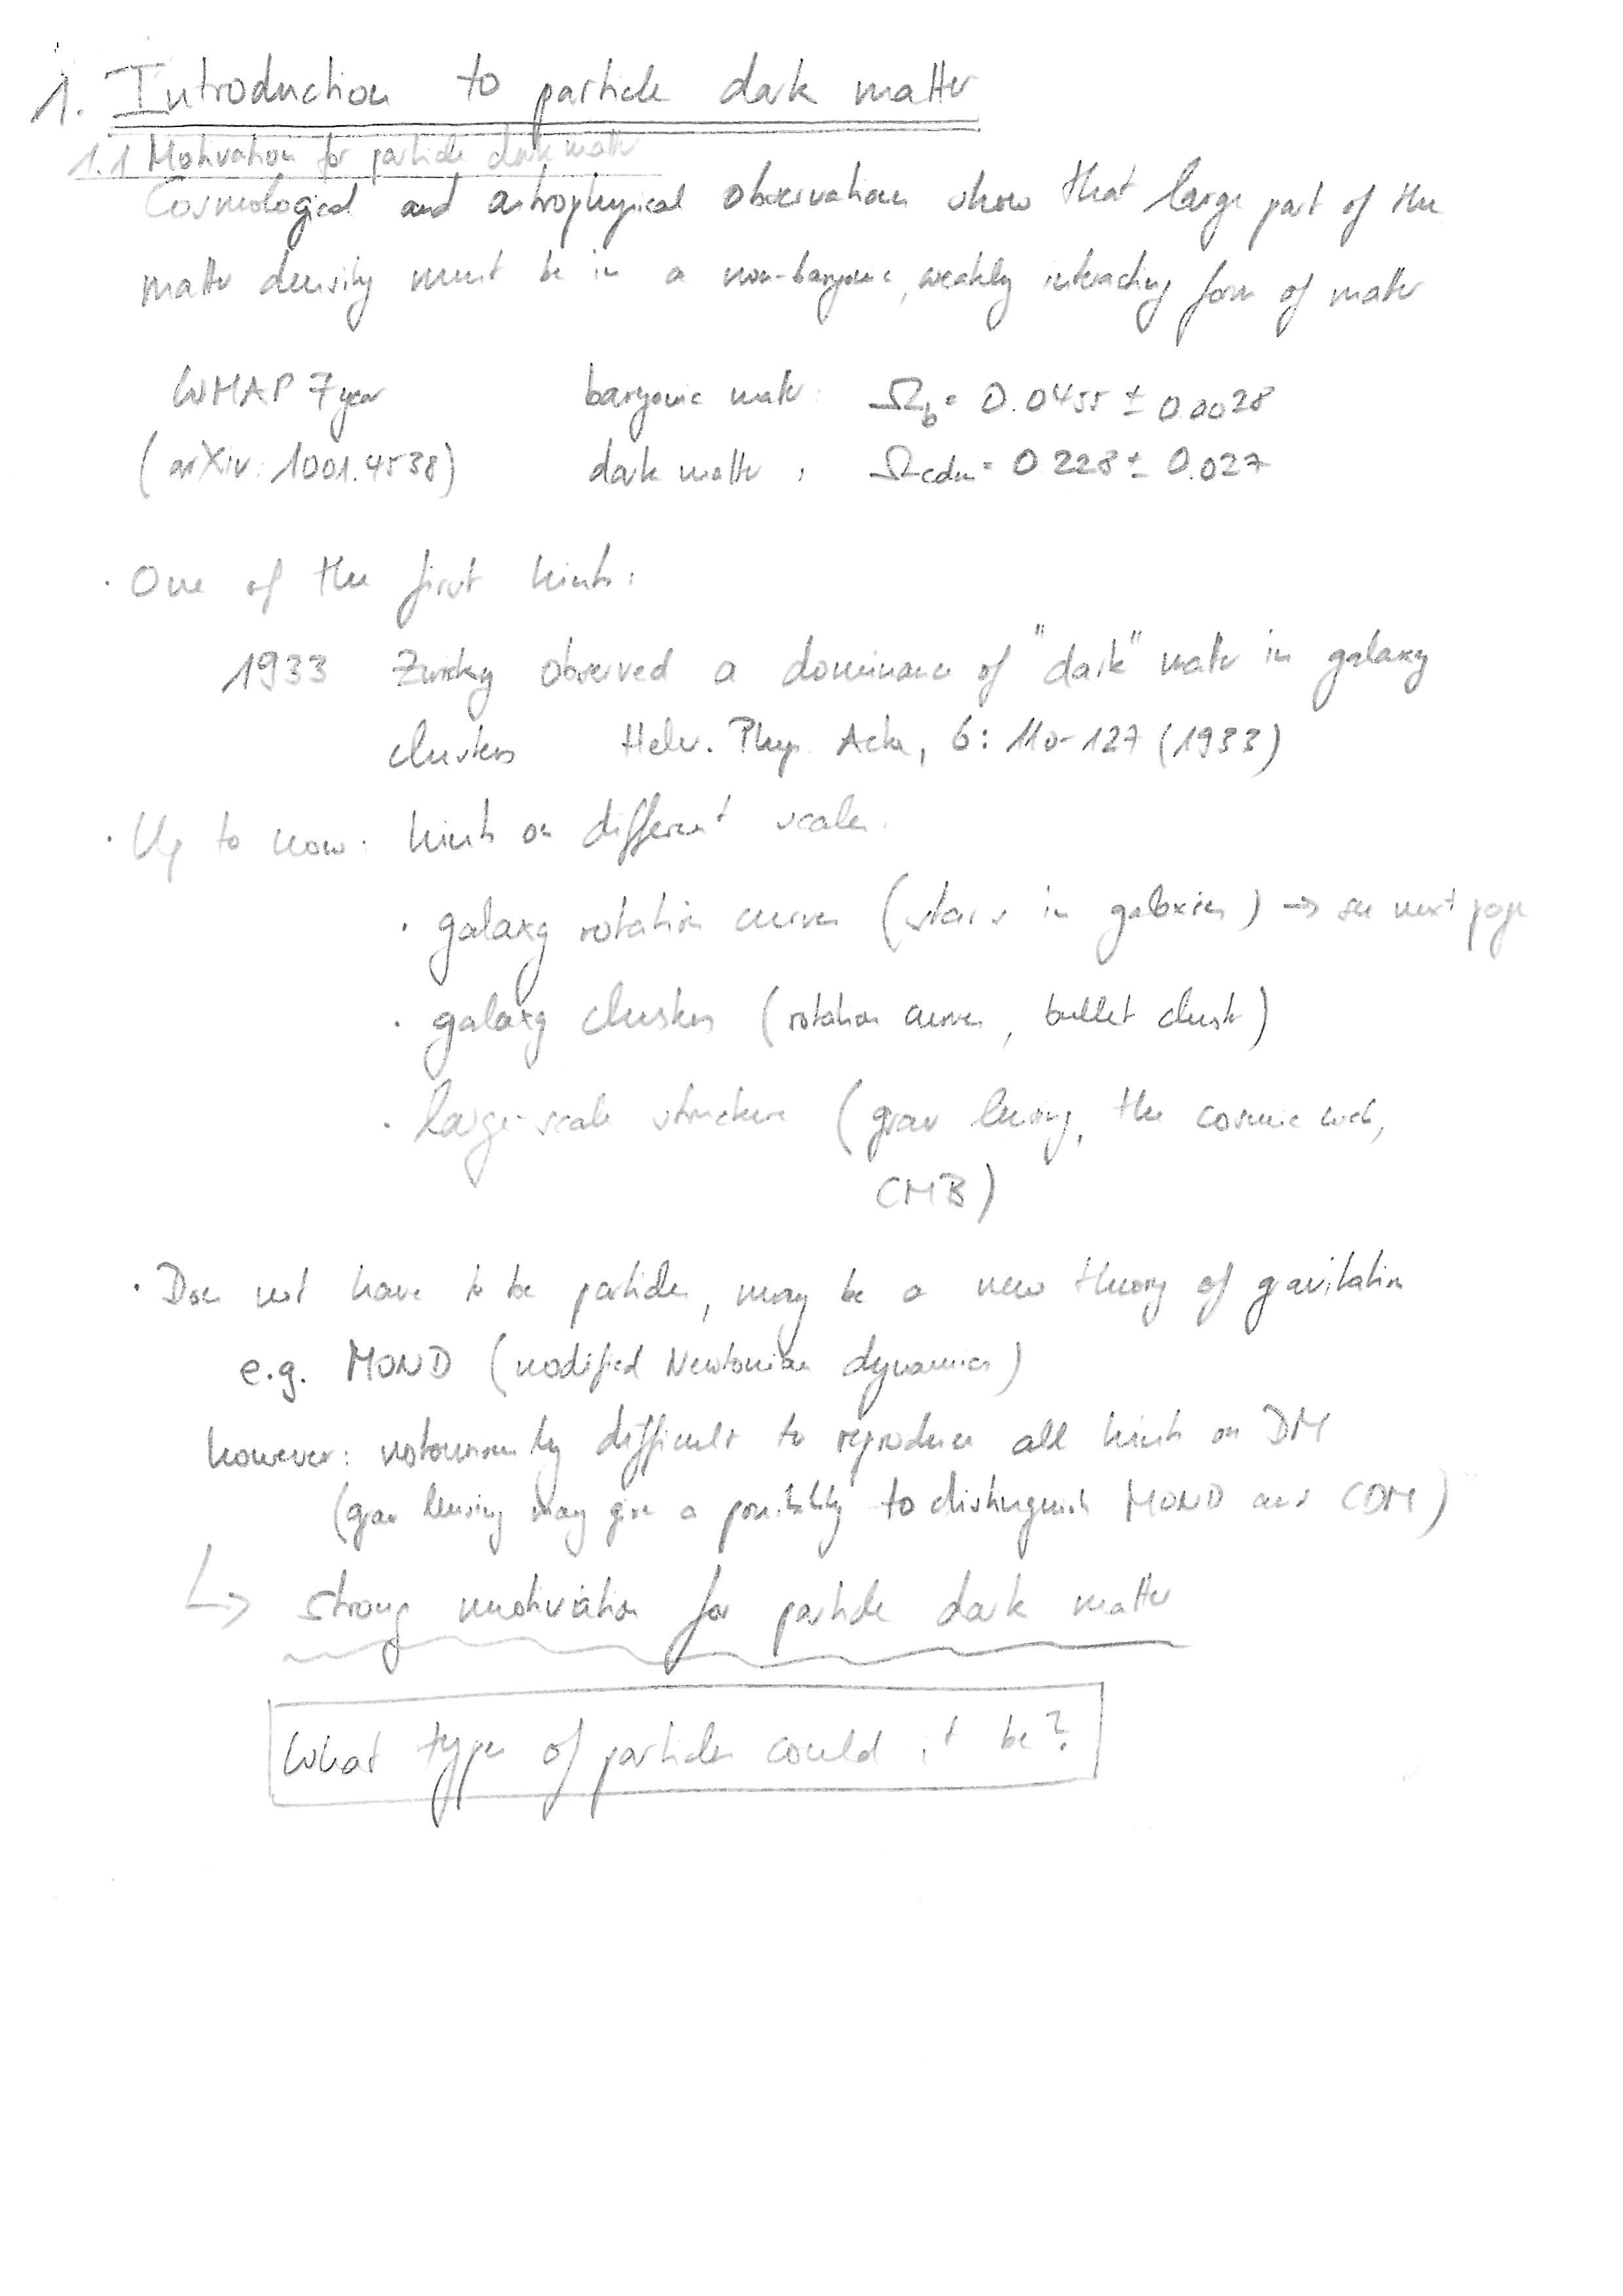 1. Introduction to particle dark matter
1.1 Motivation for particle dark matter
Cosmological and astrophysical observations show that large part of the
matter density must be in a non-baryonic, weakly interacting form of matter
WMAP 7 year baryonic matter: Ω_b = 0.0455 ± 0.0028
(arXiv: 1001.4538) dark matter: Ω_cdm = 0.228 ± 0.027
· One of the first hints:
1933 Zwicky observed a dominance of "dark" matter in galaxy
clusters Helv. Phys. Acta, 6: 110-127 (1933)
· Up to now: hints on different scales.
· galaxy rotation curves (stars in galaxies) → see next page
· galaxy clusters (rotation curves, bullet cluster)
· large-scale structure (grav lensing, the cosmic web,
CMB)
· Does not have to be particles, may be a new theory of gravitation
e.g. MOND (modified Newtonian dynamics)
however: notoriously difficult to reproduce all hints on DM
(grav lensing may give a possibility to distinguish MOND and CDM)
↳ strong motivation for particle dark matter
What type of particles could it be?